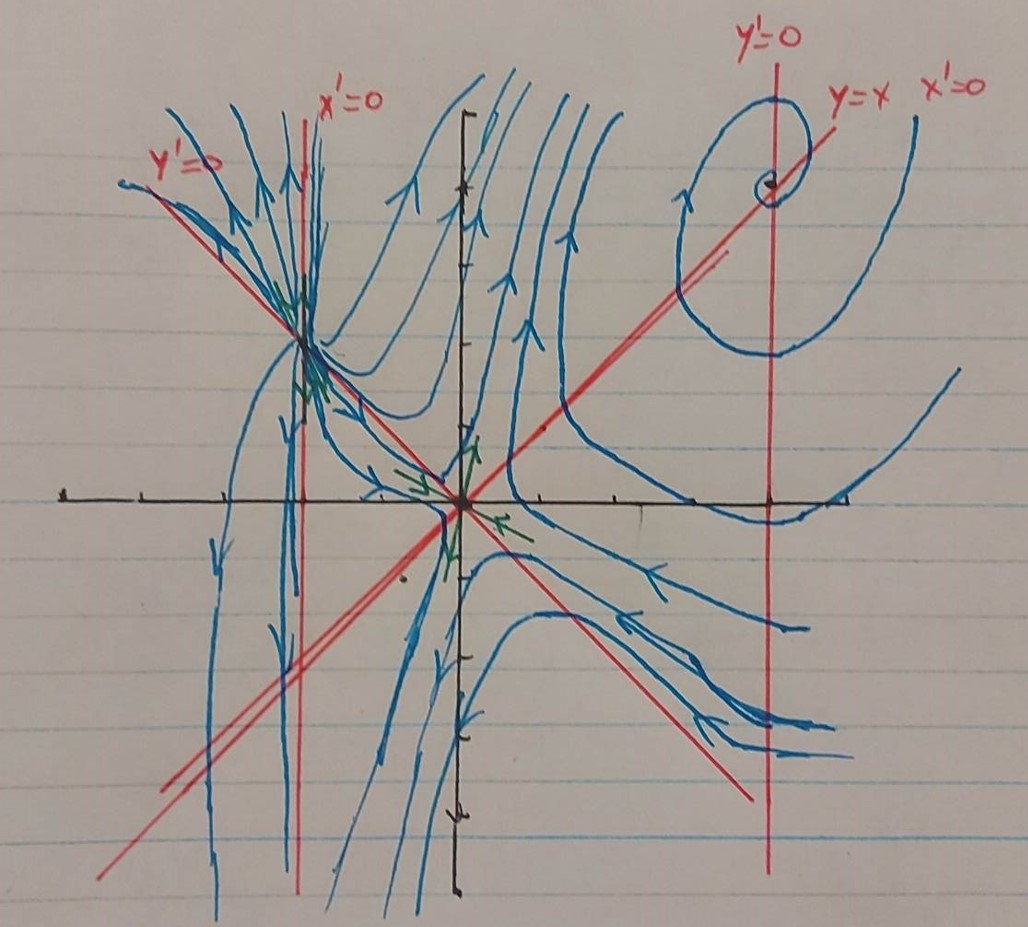 y'=0
x'=0
y=x
x'=0
y'=0